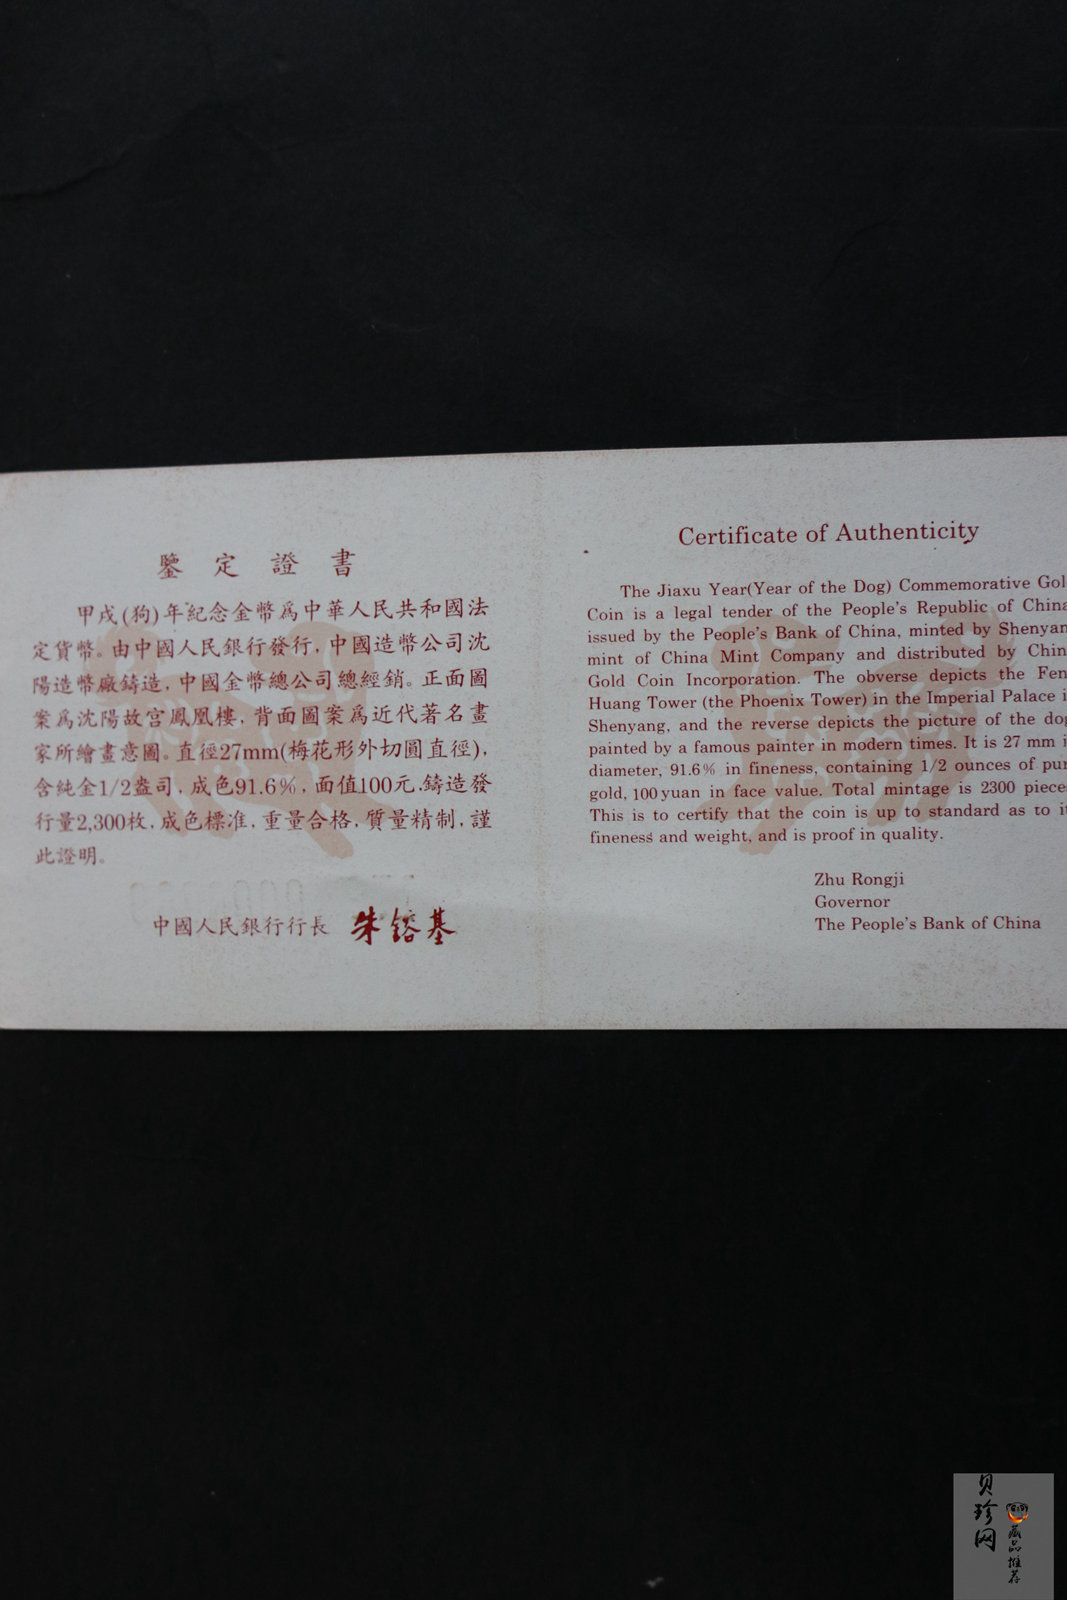 鑒定證書
甲戌(狗)年紀念金幣爲中華人民共和國法
定貨幣。由中國人民銀行發行,中國造幣公司沈
陽造幣廠鑄造,中國金幣總公司總經銷。正面圖
案爲沈陽故宫鳳凰樓,背面圖案爲近代著名畫
家所繪畫意圖。直徑27mm(梅花形外切圓直徑),
含純金1/2盎司,成色91.6%,面值100元.鑄造發
行量2,300枚,成色標准,重量合格,質量精制,謹
此證明。
中國人民銀行行長 朱鎔基
Certificate of Authenticity
The Jiaxu Year(Year of the Dog) Commemorative Gol
Coin is a legal tender of the People's Republic of China
issued by the People's Bank of China, minted by Shenyan
mint of China Mint Company and distributed by Chin
Gold Coin Incorporation. The obverse depicts the Fen
Huang Tower (the Phoenix Tower) in the Imperial Palace i
Shenyang, and the reverse depicts the picture of the dog
painted by a famous painter in modern times. It is 27 mm i
diameter, 91.6% in fineness, containing 1/2 ounces of pur
gold, 100 yuan in face value. Total mintage is 2300 piece
This is to certify that the coin is up to standard as to it
fineness and weight, and is proof in quality.
Zhu Rongji
Governor
The People's Bank of China
贝珍网
藏品推荐